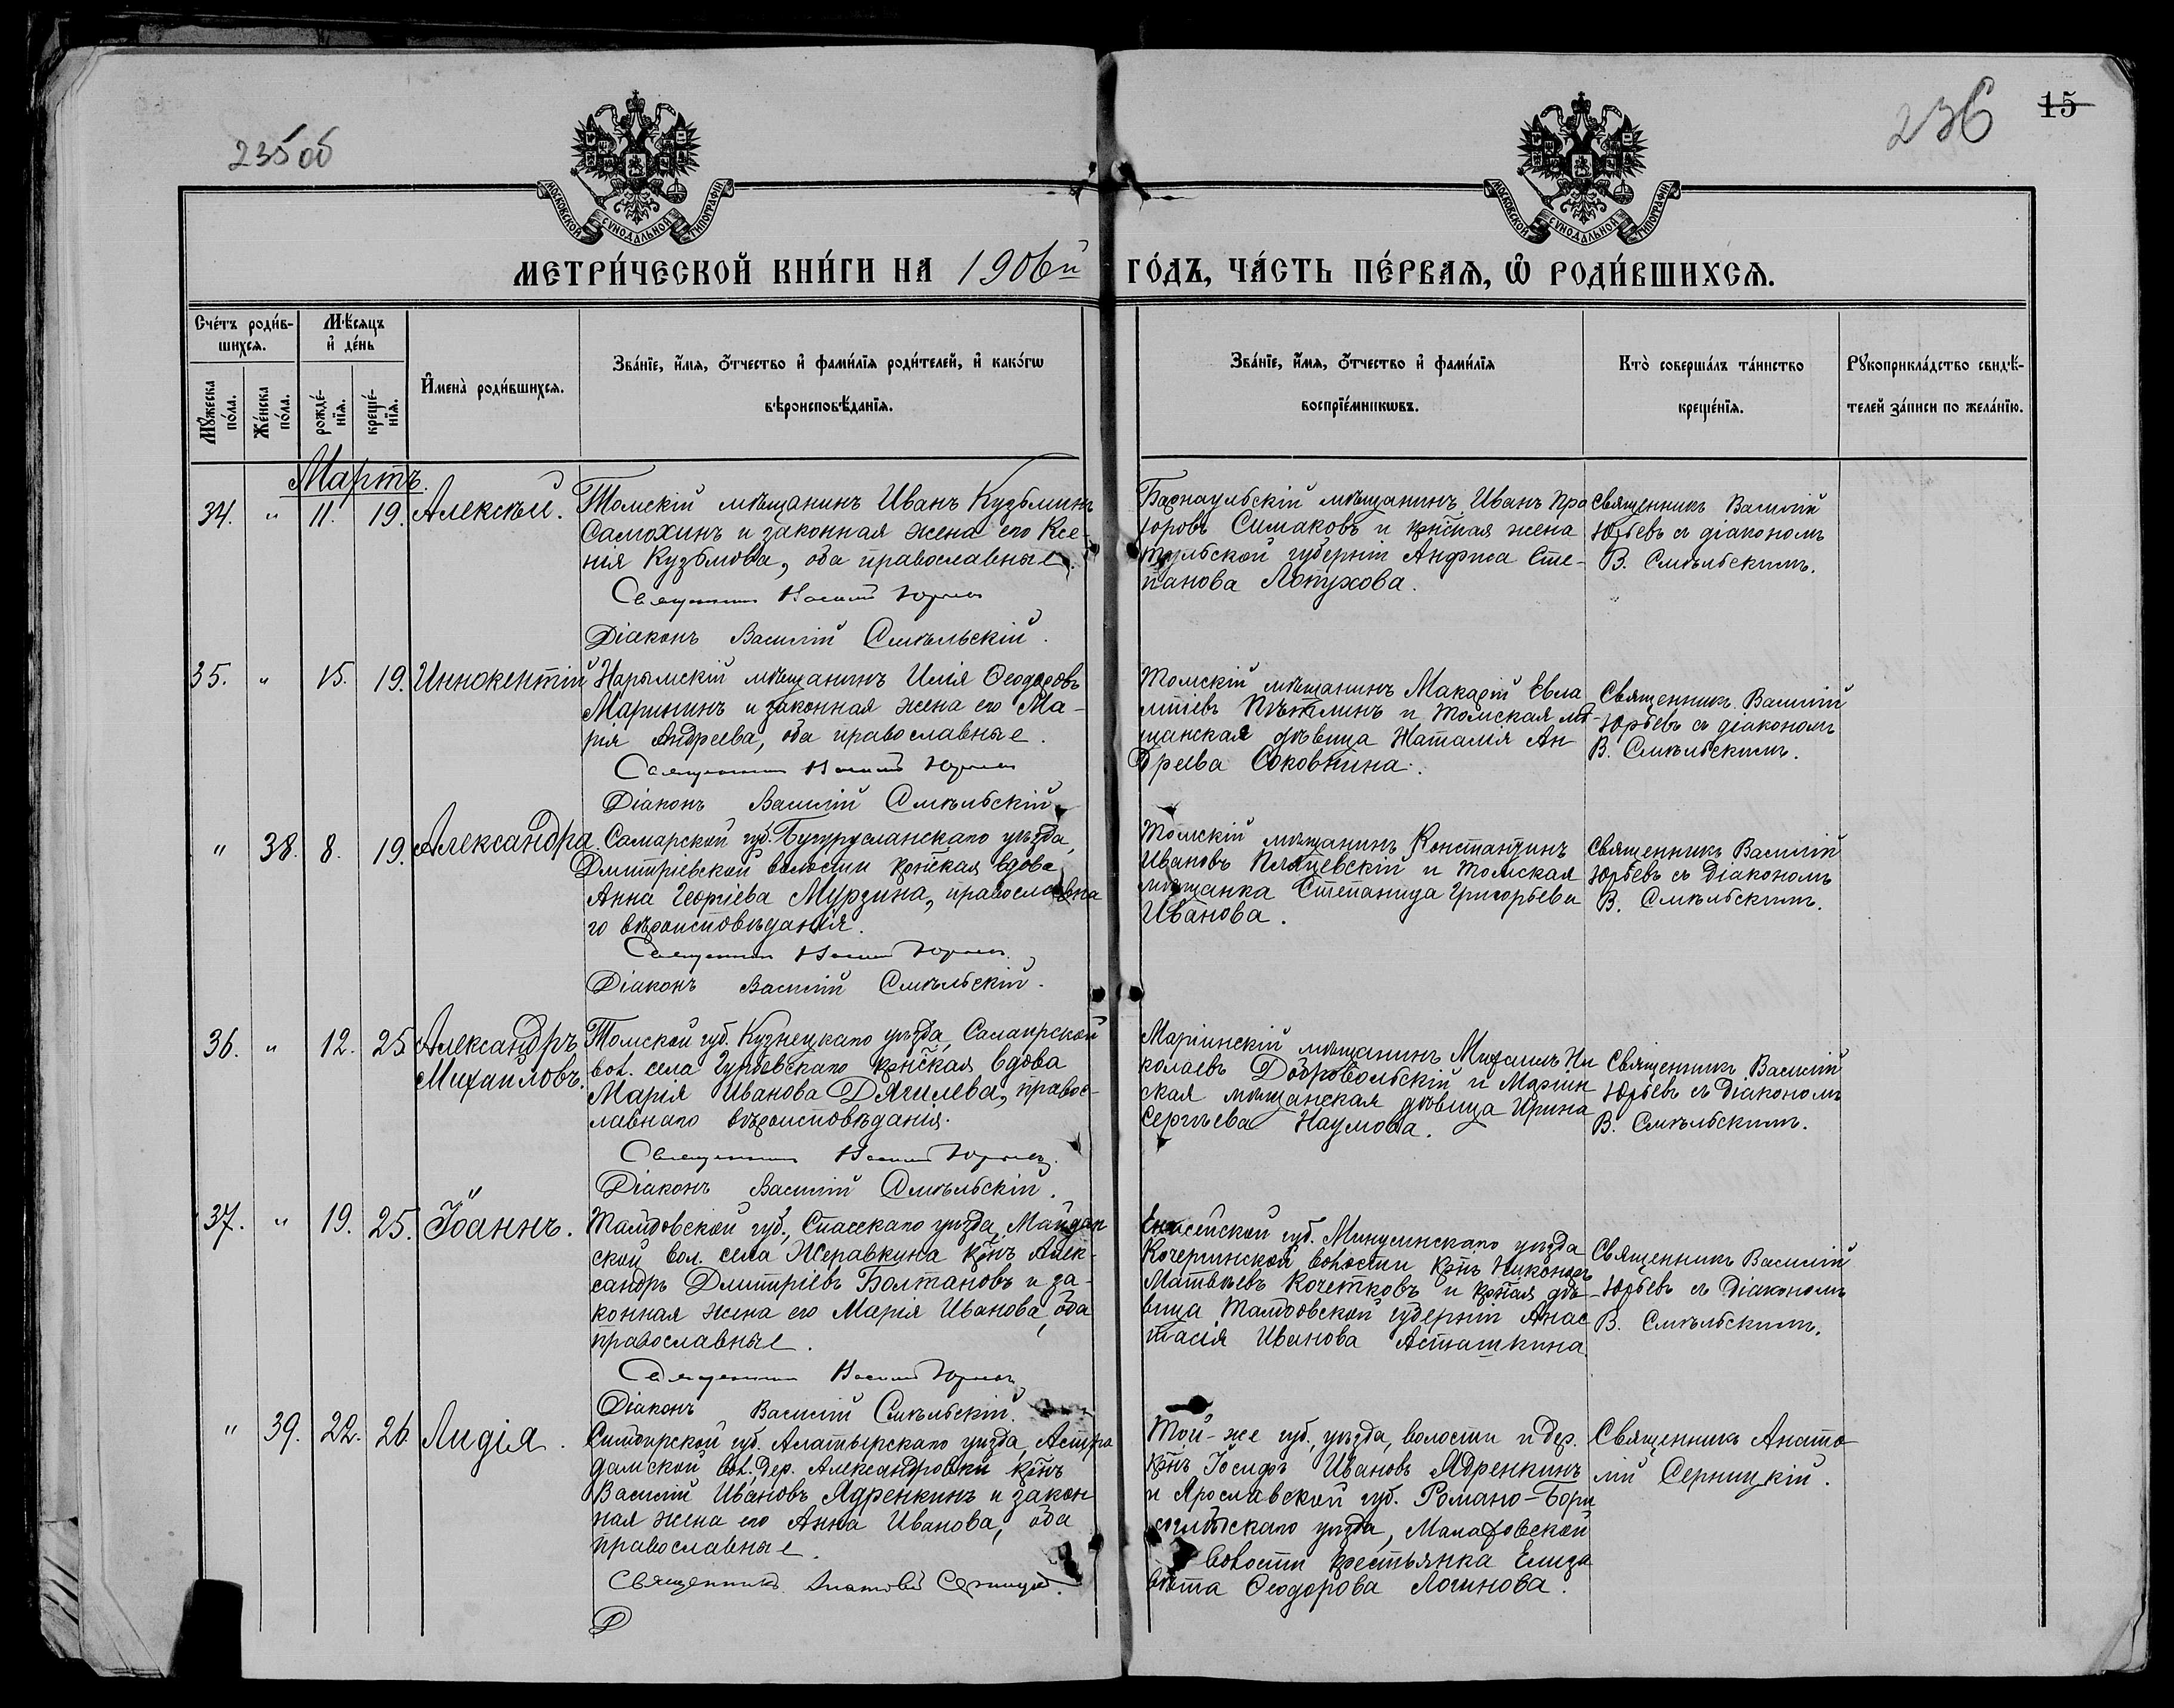 235 об
236
15
МОСКОВСКОЙ СѴНОДАЛЬНОЙ ТИПОГРАФІИ
МОСКОВСКОЙ СѴНОДАЛЬНОЙ ТИПОГРАФІИ
МЕТРИ́ЧЕСКОЙ КНИ́ГИ НА 1906й ГО́ДЪ, ЧА́СТЬ ПЕ́РВАѦ, Ѡ РОДИ́ВШИХСѦ.
Сче́тъ роди́в-
шихсѧ.
Мѣ́сяцъ
и де́нь
Мꙋ́жеска
по́ла.
Же́нска
по́ла.
рожде́-
нїѧ.
креще́-
нїѧ.
Имена̀ роди́вшихсѧ.
Зва́нїе, и́мѧ, ѻ҆́тчество и҆ фами́лїѧ роди́телей, и҆ како́гѡ
вѣроисповѣ́данїѧ.
Зва́нїе, и́мѧ, ѻ҆́тчество и҆ фами́лїѧ
воспрїе́мникѡвъ.
Кто̀ соверша́лъ та́инство
креще́нїѧ.
Рꙋкоприкла́дство свидѣ́-
телей за́писи по жела́нїю.
Мартъ.
34. " 11. 19. Алексѣй.
Томскій мѣщанинъ Иванъ Кузьминъ
Самохинъ и законная жена его Ксе-
нія Кузьмова, оба православные.
Священникъ Василій Юрьевъ
Діаконъ Василій Смѣльскій.
Барнаульскій мѣщанинъ Иванъ Про
горовъ Симаковъ и крнская жена
Тульской губерніи Анфиса Сте-
панова Лопухова.
Священникъ Василій
Юрьевъ съ діакономъ
В. Смѣльскимъ.
35. " 15. 19. Иннокентій
Нарымскій мѣщанинъ Илія Ѳеодоровъ
Маринінъ и законная жена его Ма-
рія Андреева, оба православные.
Священникъ Василій Юрьевъ
Діаконъ Василій Смѣльскій.
Томскій мѣщанинъ Макарій Евла
мпіевъ Пѣтлинъ и томская мѣ-
щанская дѣвица Наталія Ан
дреева Соковнина.
Священникъ Василій
Юрьевъ съ діакономъ
В. Смѣльскимъ.
" 38. 8. 19. Александра.
Самарской губ. Бугурусланскаго уѣзда,
Дмитріевской волости крнская вдова
Анна Георгіева Мурзина, православна
го вѣроисповѣданія.
Священникъ Василій Юрьевъ
Діаконъ Василій Смѣльскій.
Томскій мѣщанинъ Константинъ
Ивановъ и томская
мѣщанка Степанида Григорьева
Иванова.
Священникъ Василій
Юрьевъ съ Діакономъ
В. Смѣльскимъ.
36. " 12. 25. Александръ
Михаиловъ.
Томской губ. Кузнецкаго уѣзда, Салаирской
вол. села Гурьевскаго крнская вдова
Марія Иванова Дягилева, правос-
лавнаго вѣроисповѣданія.
Священникъ Василій Юрьевъ
Діаконъ Василій Смѣльскій.
Маріинскій мѣщанинъ Михаилъ Ни
колаевъ Добровольскій и Маріин
ская мѣщанская дѣвица Ирина
Сергѣева Наумова.
Священникъ Василій
Юрьевъ съ Діакономъ
В. Смѣльскимъ.
37. " 19. 25. Іоаннъ.
Тамбовской губ., Спасскаго уѣзда, Майдан
ской вол. села Жеравкина крнъ Алек-
сандръ Дмитріевъ Болтановъ и за-
конная жена его Марія Иванова, оба
православные.
Священникъ Василій Юрьевъ
Діаконъ Василій Смѣльскій.
Енисейской губ. Минусинскаго уѣзда
Кочергинской волости крнъ Никоноръ
Матвѣевъ Кочетковъ и крнская дѣ-
вица Тамбовской губерніи Анас
тасія Иванова Асташкина.
Священникъ Василій
Юрьевъ съ Діакономъ
В. Смѣльскимъ.
" 39. 22. 26. Лидія.
Симбирской губ. Алатырскаго уѣзда, Астра
дамской вол. дер. Александровки крнъ
Василій Ивановъ Ядренкинъ и закон
ная жена его Анна Иванова, оба
православные.
Священникъ Анатолій Серницкій.
Той-же губ., уѣзда, волости и дер.
крнъ Іосифъ Ивановъ Ядренкинъ
и Ярославской губ. Романо-Бори
соглѣбскаго уѣзда, Малаховской
волости крестьянка Елиза
вета Ѳеодорова Логинова.
Священникъ Анато
лій Серницкій.